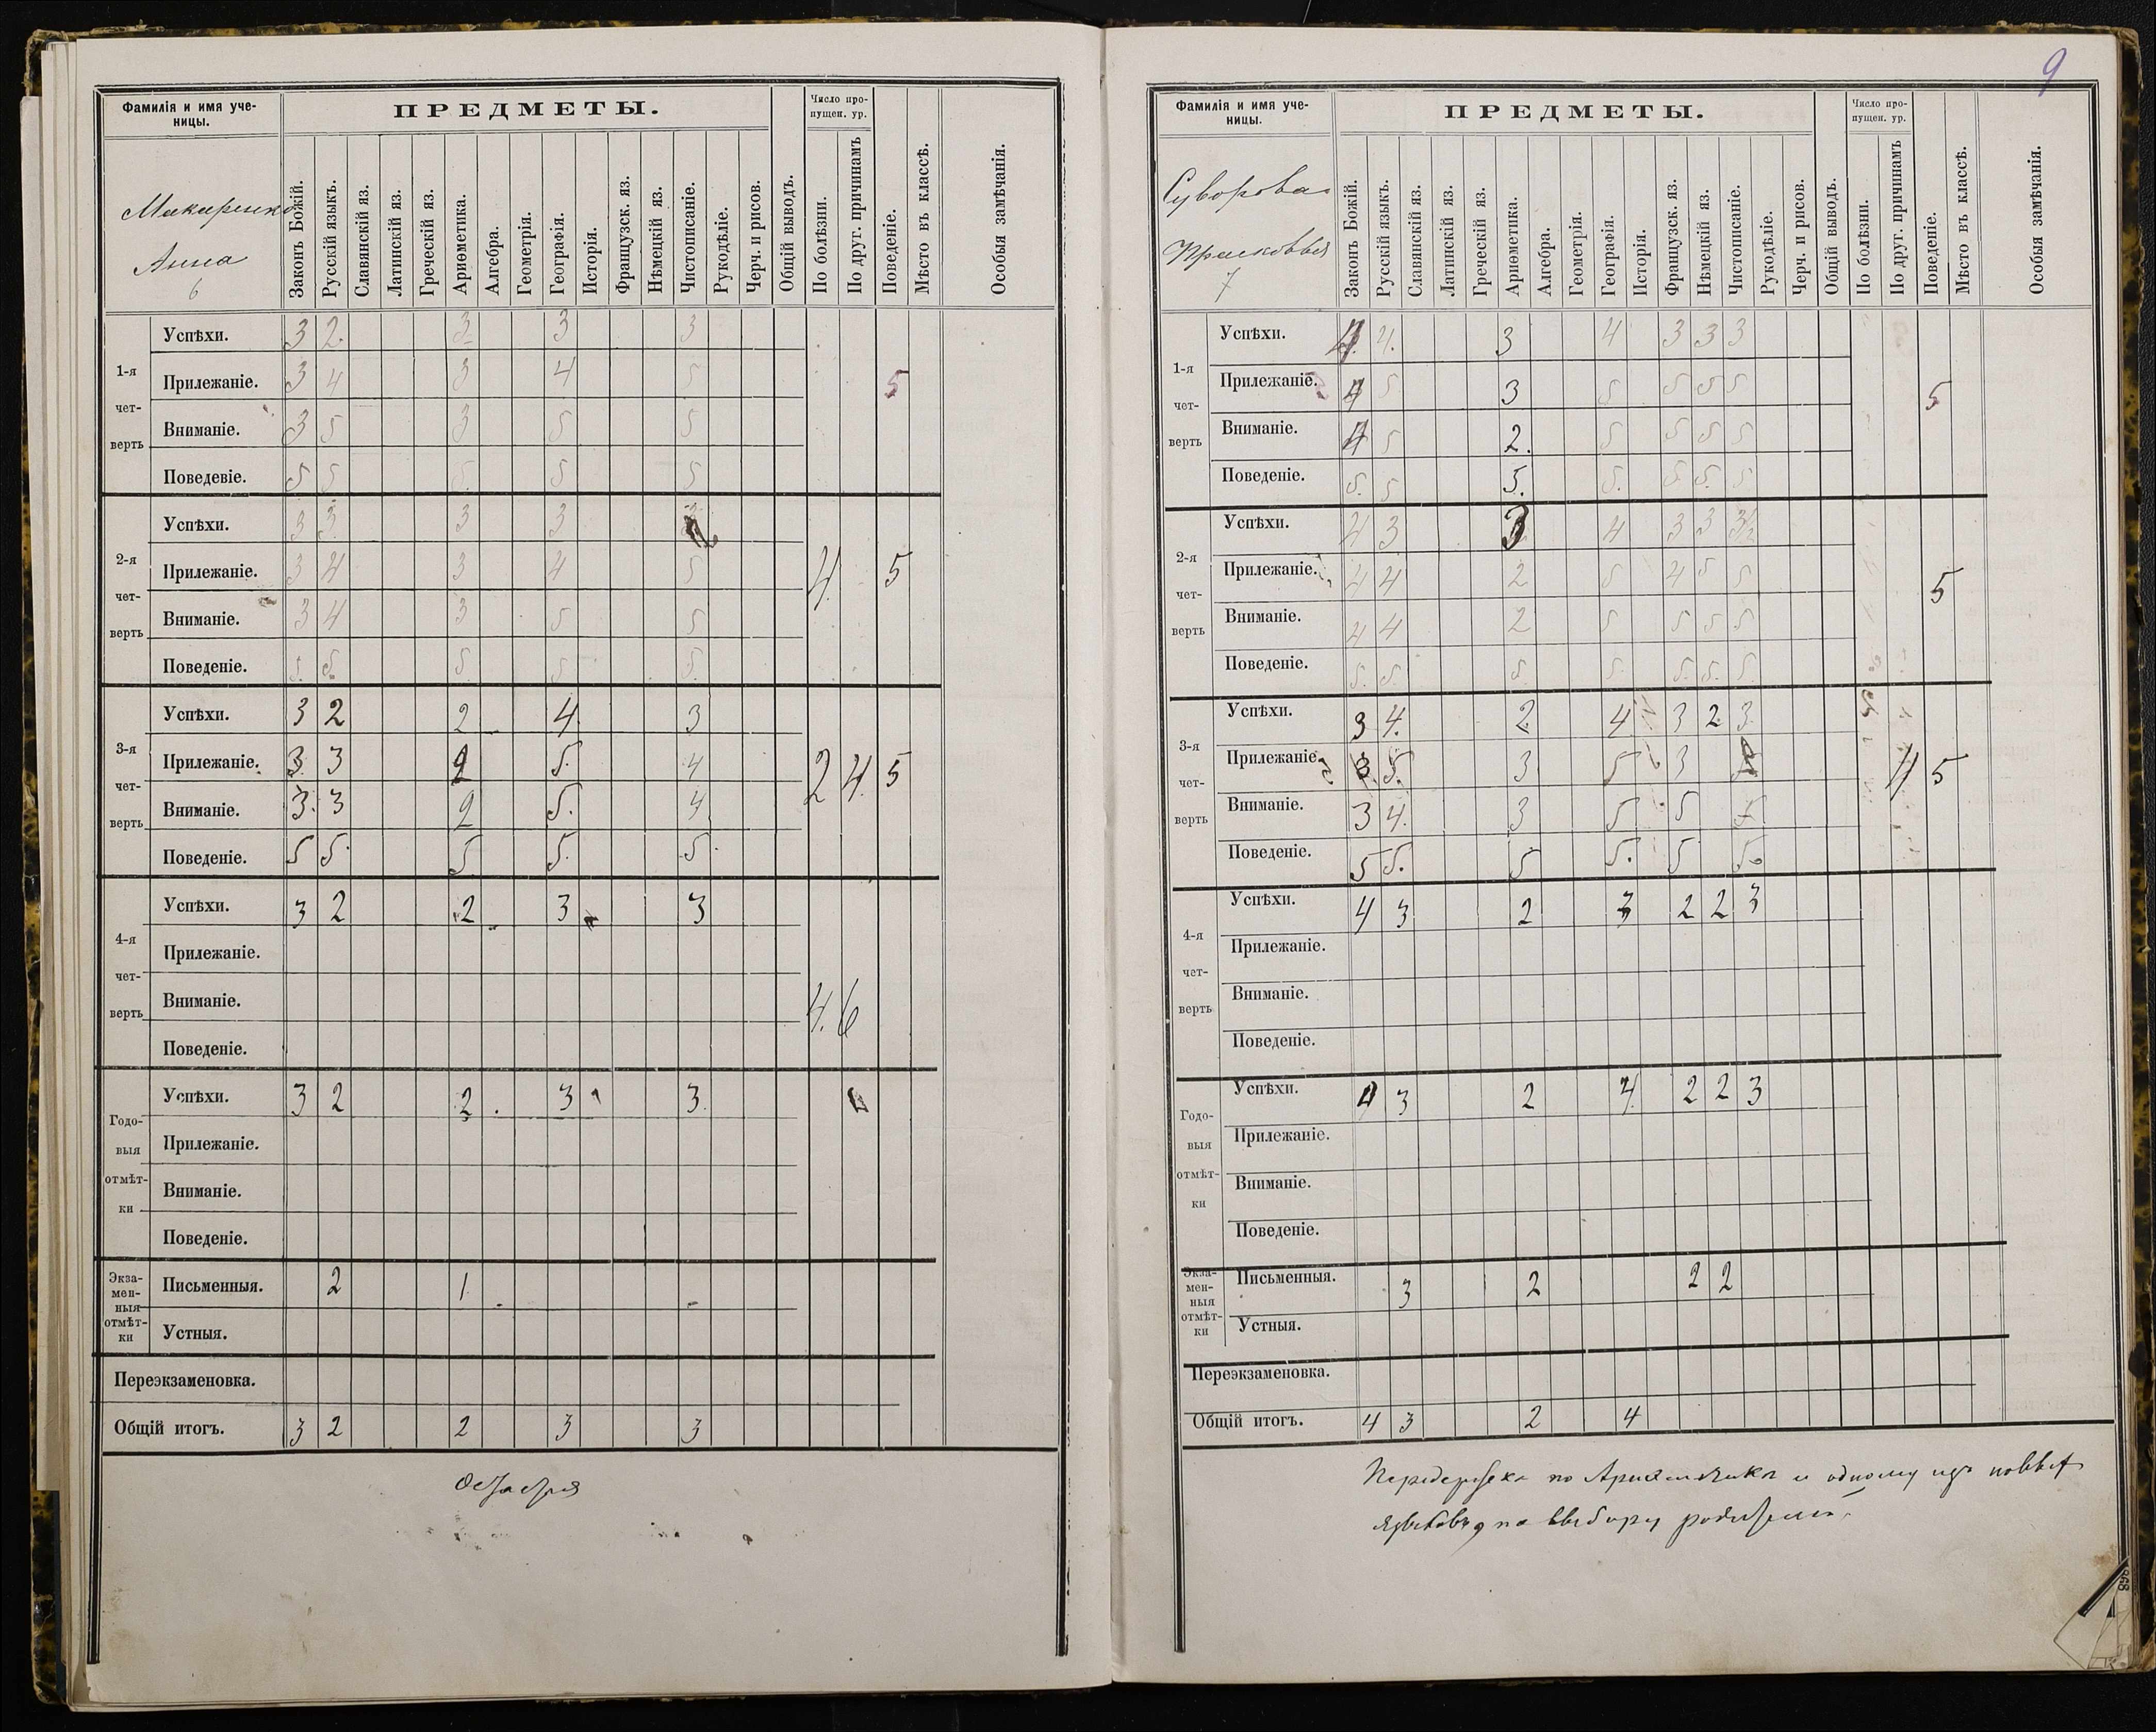 Фамилія и имя уче-
ницы.
ПРЕДМЕТЫ.
Число про-
пущен. ур.
Макаренко
Анна
6
Законъ Божій.
Русскій языкъ.
Славянскій яз.
Латинскій яз.
Греческій яз.
Ариѳметика.
Алгебра.
Геометрія.
Географія.
Исторія.
Французск. яз.
Нѣмецкій яз.
Чистописаніе.
Рукодѣліе.
Черч. и рисов.
Общій выводъ.
По болѣзни.
По друг. причинамъ
Поведеніе.
Мѣсто въ классѣ.
Особыя замѣчанія.
1-я чет- верть
Успѣхи. 3 2. 3 3 3
Прилежаніе. 3 4 3 4 5 5
Вниманіе. 3 5 3 5 5
Поведевіе. 5 5 5. 5 5
2-я чет- верть
Успѣхи. 3 3 3 3
Прилежаніе. 3 4 3 4 5 4. 5
Вниманіе. 3 4 3 5 5
Поведеніе. 5. 5. 5. 5 5.
3-я чет- верть
Успѣхи. 3 2 2 4 3
Прилежаніе. 3. 3 2 5. 4 2 4. 5
Вниманіе. 3. 3 2 5. 4
Поведеніе. 5 5. 5 5. 5.
4-я чет- верть
Успѣхи. 3 2 2 3 3
Прилежаніе.
Вниманіе. 4. 6
Поведеніе.
Годо- выя отмѣт- ки
Успѣхи. 3 2 2. 3 3.
Прилежаніе.
Вниманіе.
Поведеніе.
Экза- мен- ныя отмѣт- ки
Письменныя. 2 1
Устныя.
Переэкзаменовка.
Общій итогъ. 3 2 2 3 3
9
Фамилія и имя уче-
ницы.
ПРЕДМЕТЫ.
Число про-
пущен. ур.
Суворова
Прасковья
7
Законъ Божій.
Русскій языкъ.
Славянскій яз.
Латинскій яз.
Греческій яз.
Ариѳметика.
Алгебра.
Геометрія.
Географія.
Исторія.
Французск. яз.
Нѣмецкій яз.
Чистописаніе.
Рукодѣліе.
Черч. и рисов.
Общій выводъ.
По болѣзни.
По друг. причинамъ
Поведеніе.
Мѣсто въ классѣ.
Особыя замѣчанія.
1-я чет- верть
Успѣхи. 4. 4. 3 4 3 3 3
Прилежаніе. 4 5 3 5 5 5 5 5
Вниманіе. 4 5 2. 5 5 5 5
Поведеніе. 5. 5 5. 5. 5 5. 5
2-я чет- верть
Успѣхи. 4 3 3 4 3 3 3½
Прилежаніе. 4 4 2 5 4 5 5 5
Вниманіе. 4 4 2 5 5 5 5
Поведеніе. 5. 5. 5. 5. 5. 5. 5.
3-я чет- верть
Успѣхи. 3 4. 2 4. 3 2 3
Прилежаніе. 3 5. 3 5 3 4 5
Вниманіе. 3 4. 3 5 5
Поведеніе. 5 5. 5 5. 5 5
4-я чет- верть
Успѣхи. 4 3 2 3 2 2 3
Прилежаніе.
Вниманіе.
Поведеніе.
Годо- выя отмѣт- ки
Успѣхи. 4 3 2 4 2 2 3
Прилежаніе.
Вниманіе.
Поведеніе.
Экза- мен- ныя отмѣт- ки
Письменныя. 3 2 2 2
Устныя.
Переэкзаменовка.
Общій итогъ. 4 3 2 4
Передержка по Ариѳметикѣ и одному изъ новыхъ
языковъ, по выбору родителей.